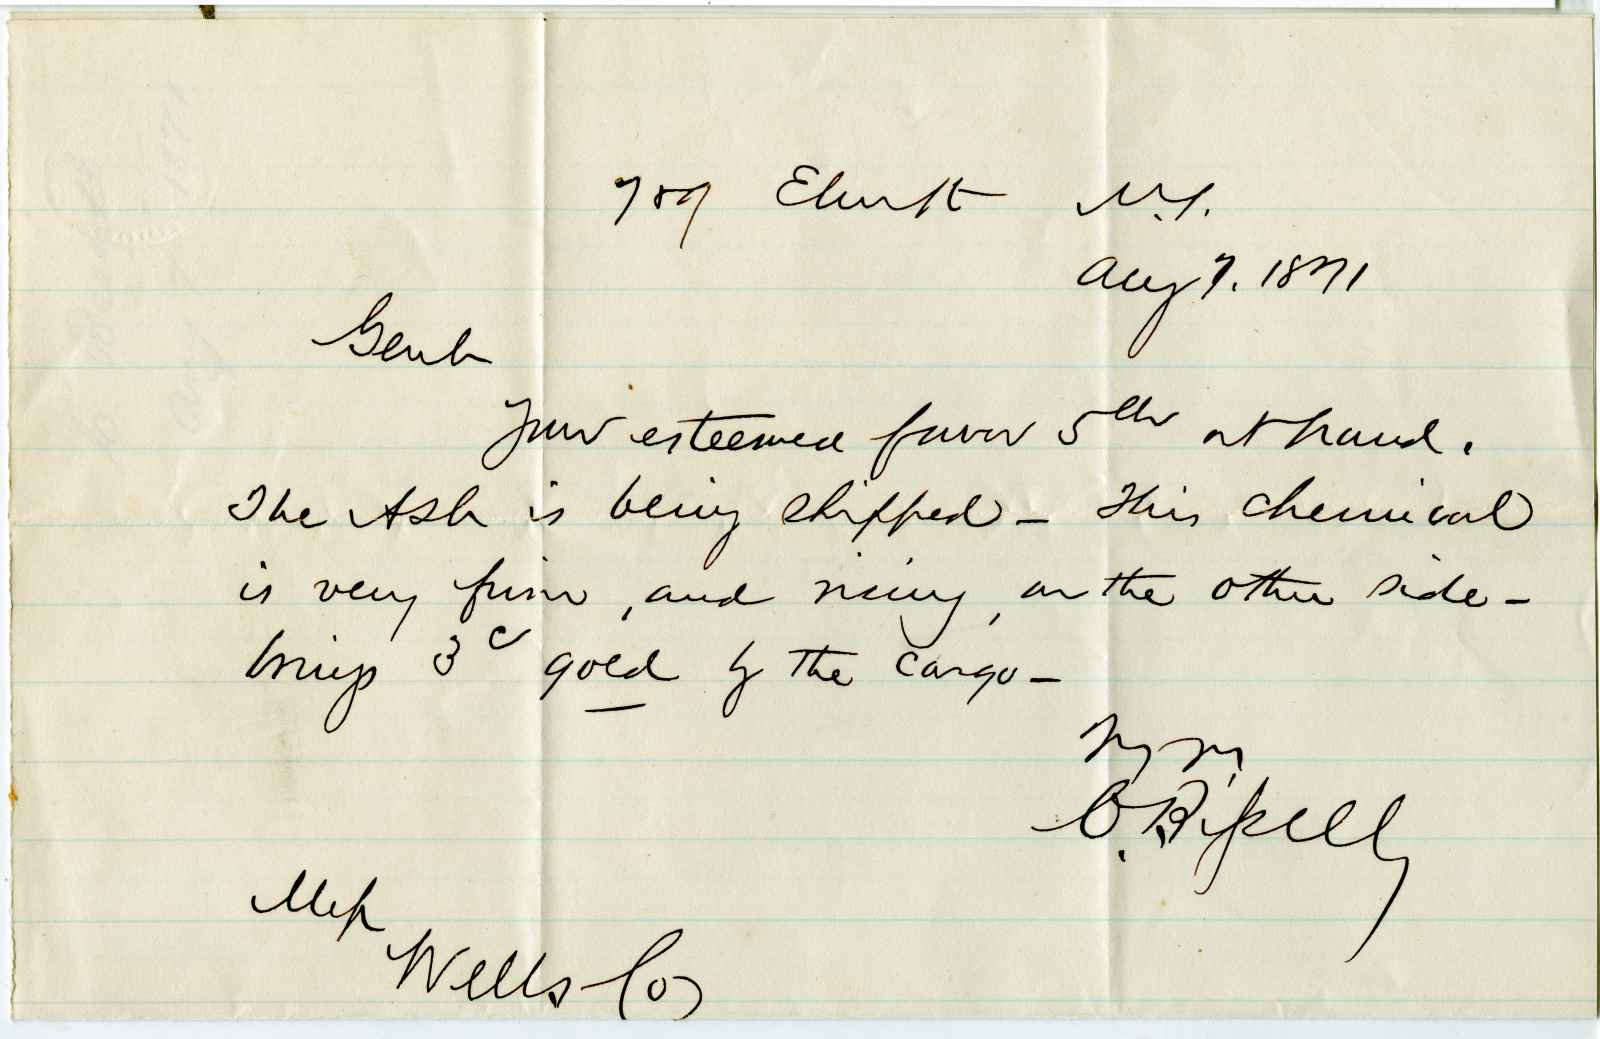 789 Elm St N.Y.
Aug 7. 1871
Gents
Your esteemed favor 5th at hand.
The Ash is being shipped - This chemical
is very firm, and rising, on the other side -
brings 3c gold by the cargo -
C. Bissell
Mess
Wells Co